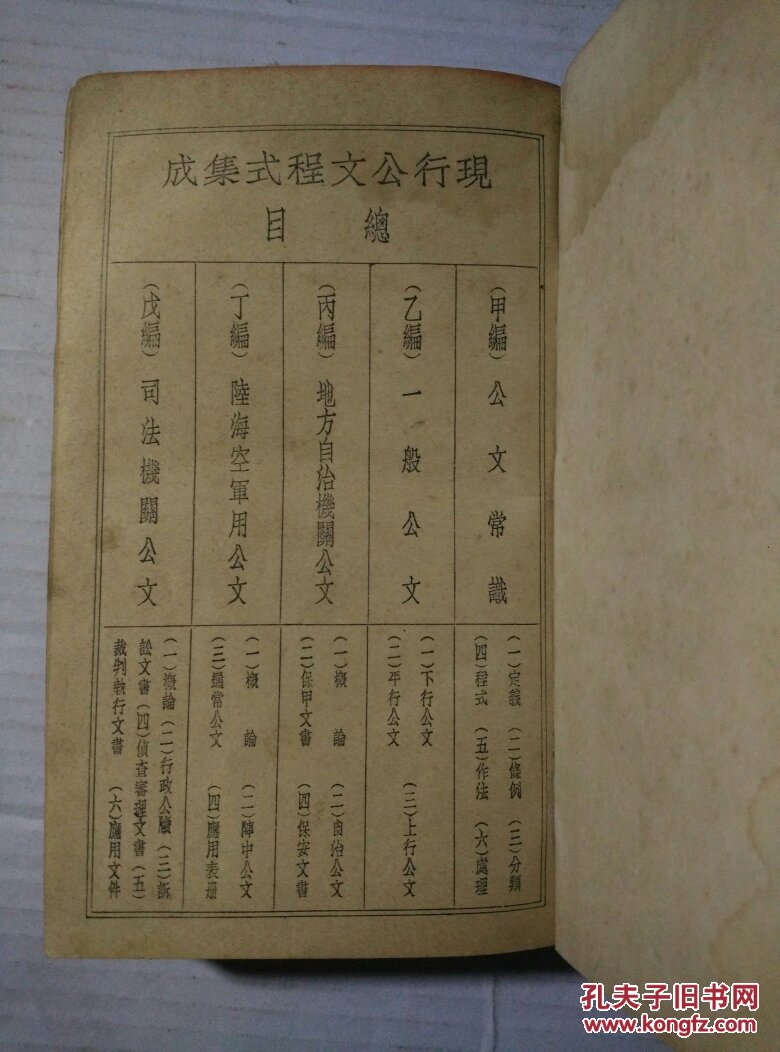 現行公文程式集成
總目
(甲編)公文常識
(一)定義 (二)條例 (三)分類
(四)程式 (五)作法 (六)處理
(乙編)一般公文
(一)下行公文
(二)平行公文 (三)上行公文
(丙編)地方自治機關公文
(一)概論 (二)自治公文
(二)保甲文書 (四)保安文書
(丁編)陸海空軍用公文
(一)概論 (二)陣中公文
(三)通常公文 (四)應用表册
(戊編)司法機關公文
(一)概論(二)行政公牘(三)訴
訟文書(四)偵查審理文書(五)
裁判執行文書 (六)應用文件
孔夫子旧书网
www.kongfz.com